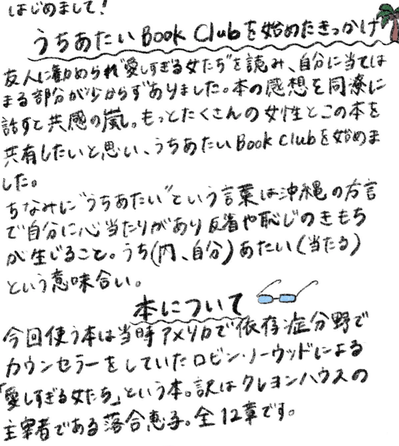 はじめまして!
うちあたい Book Clubを始めたきっかけ
友人に勧められ"愛しすぎる女たち"を読み、自分に当ては
まる部分が少からずありました。本の感想を同僚に
話すと共感の嵐。もっとたくさんの女性とこの本を
共有したいと思い、うちあたい Book Clubを始めま
した。
ちなみに"うちあたい"という言葉は沖縄の方言
で自分に心当たりがあり反省や恥じのきもち
が生じること。うち(内、自分)あたい(当たる)
という意味合い。
本について
今回使う本は当時アメリカで依存症分野で
カウンセラーをしていたロビン・ノーウッドによる
「愛しすぎる女たち」という本。訳はクレヨンハウスの
主宰者である落合恵子。全12章です。